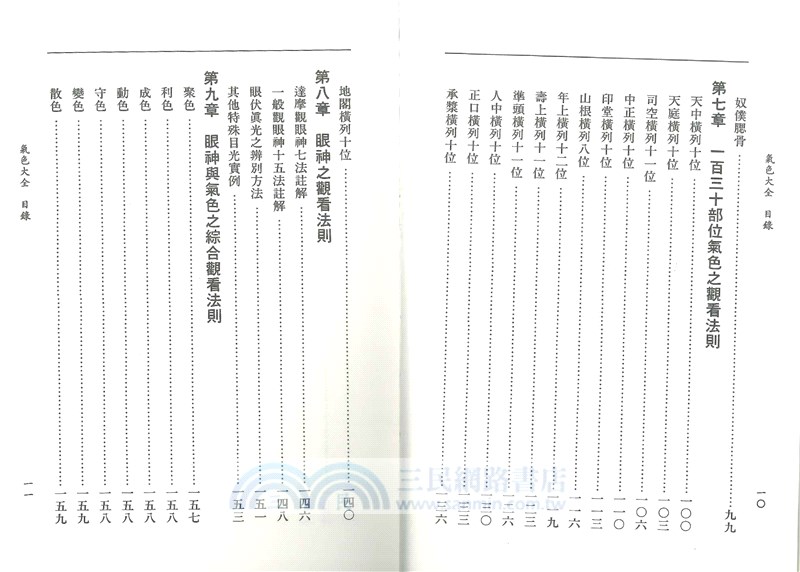 氣色大全 目錄
一〇
奴僕腮骨……九九
第七章 一百三十部位氣色之觀看法則
天中橫列十位……一〇〇
天庭橫列十位……一〇三
司空橫列十一位……一〇六
中正橫列十位……一一〇
印堂橫列十位……一一三
山根橫列八位……一一六
年上橫列十二位……一一九
壽上橫列十一位……一二三
準頭橫列十一位……一二六
人中橫列十位……一三〇
正口橫列十位……一三三
承漿橫列十位……一三六
地閣橫列十位……一四〇
第八章 眼神之觀看法則
達摩觀眼神七法註解……一四六
一般觀眼神十五法註解……一四八
眼伏眞光之辨別方法……一五一
其他特殊目光實例……一五三
第九章 眼神與氣色之綜合觀看法則
聚色……一五七
利色……一五八
成色……一五八
動色……一五八
守色……一五八
變色……一五九
散色……一五九
氣色大全 目錄
一一
三民網路書店
www.sanmin.com.tw